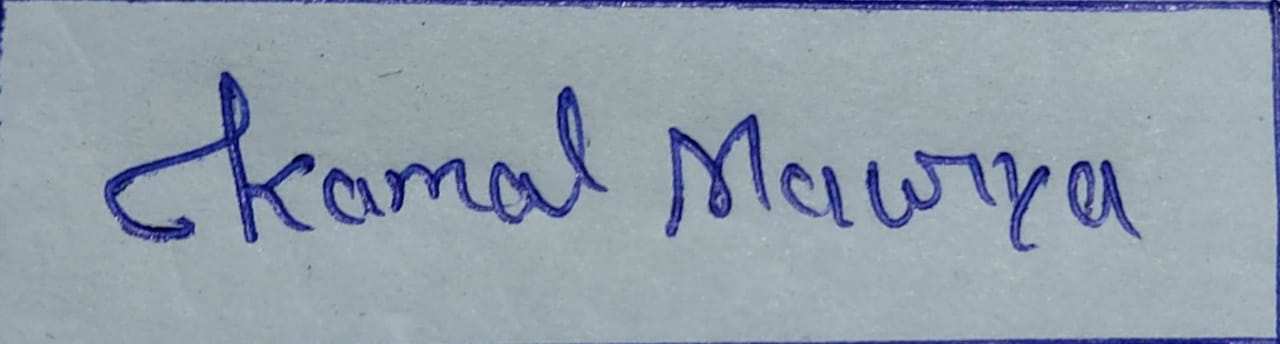 Kamal Maurya